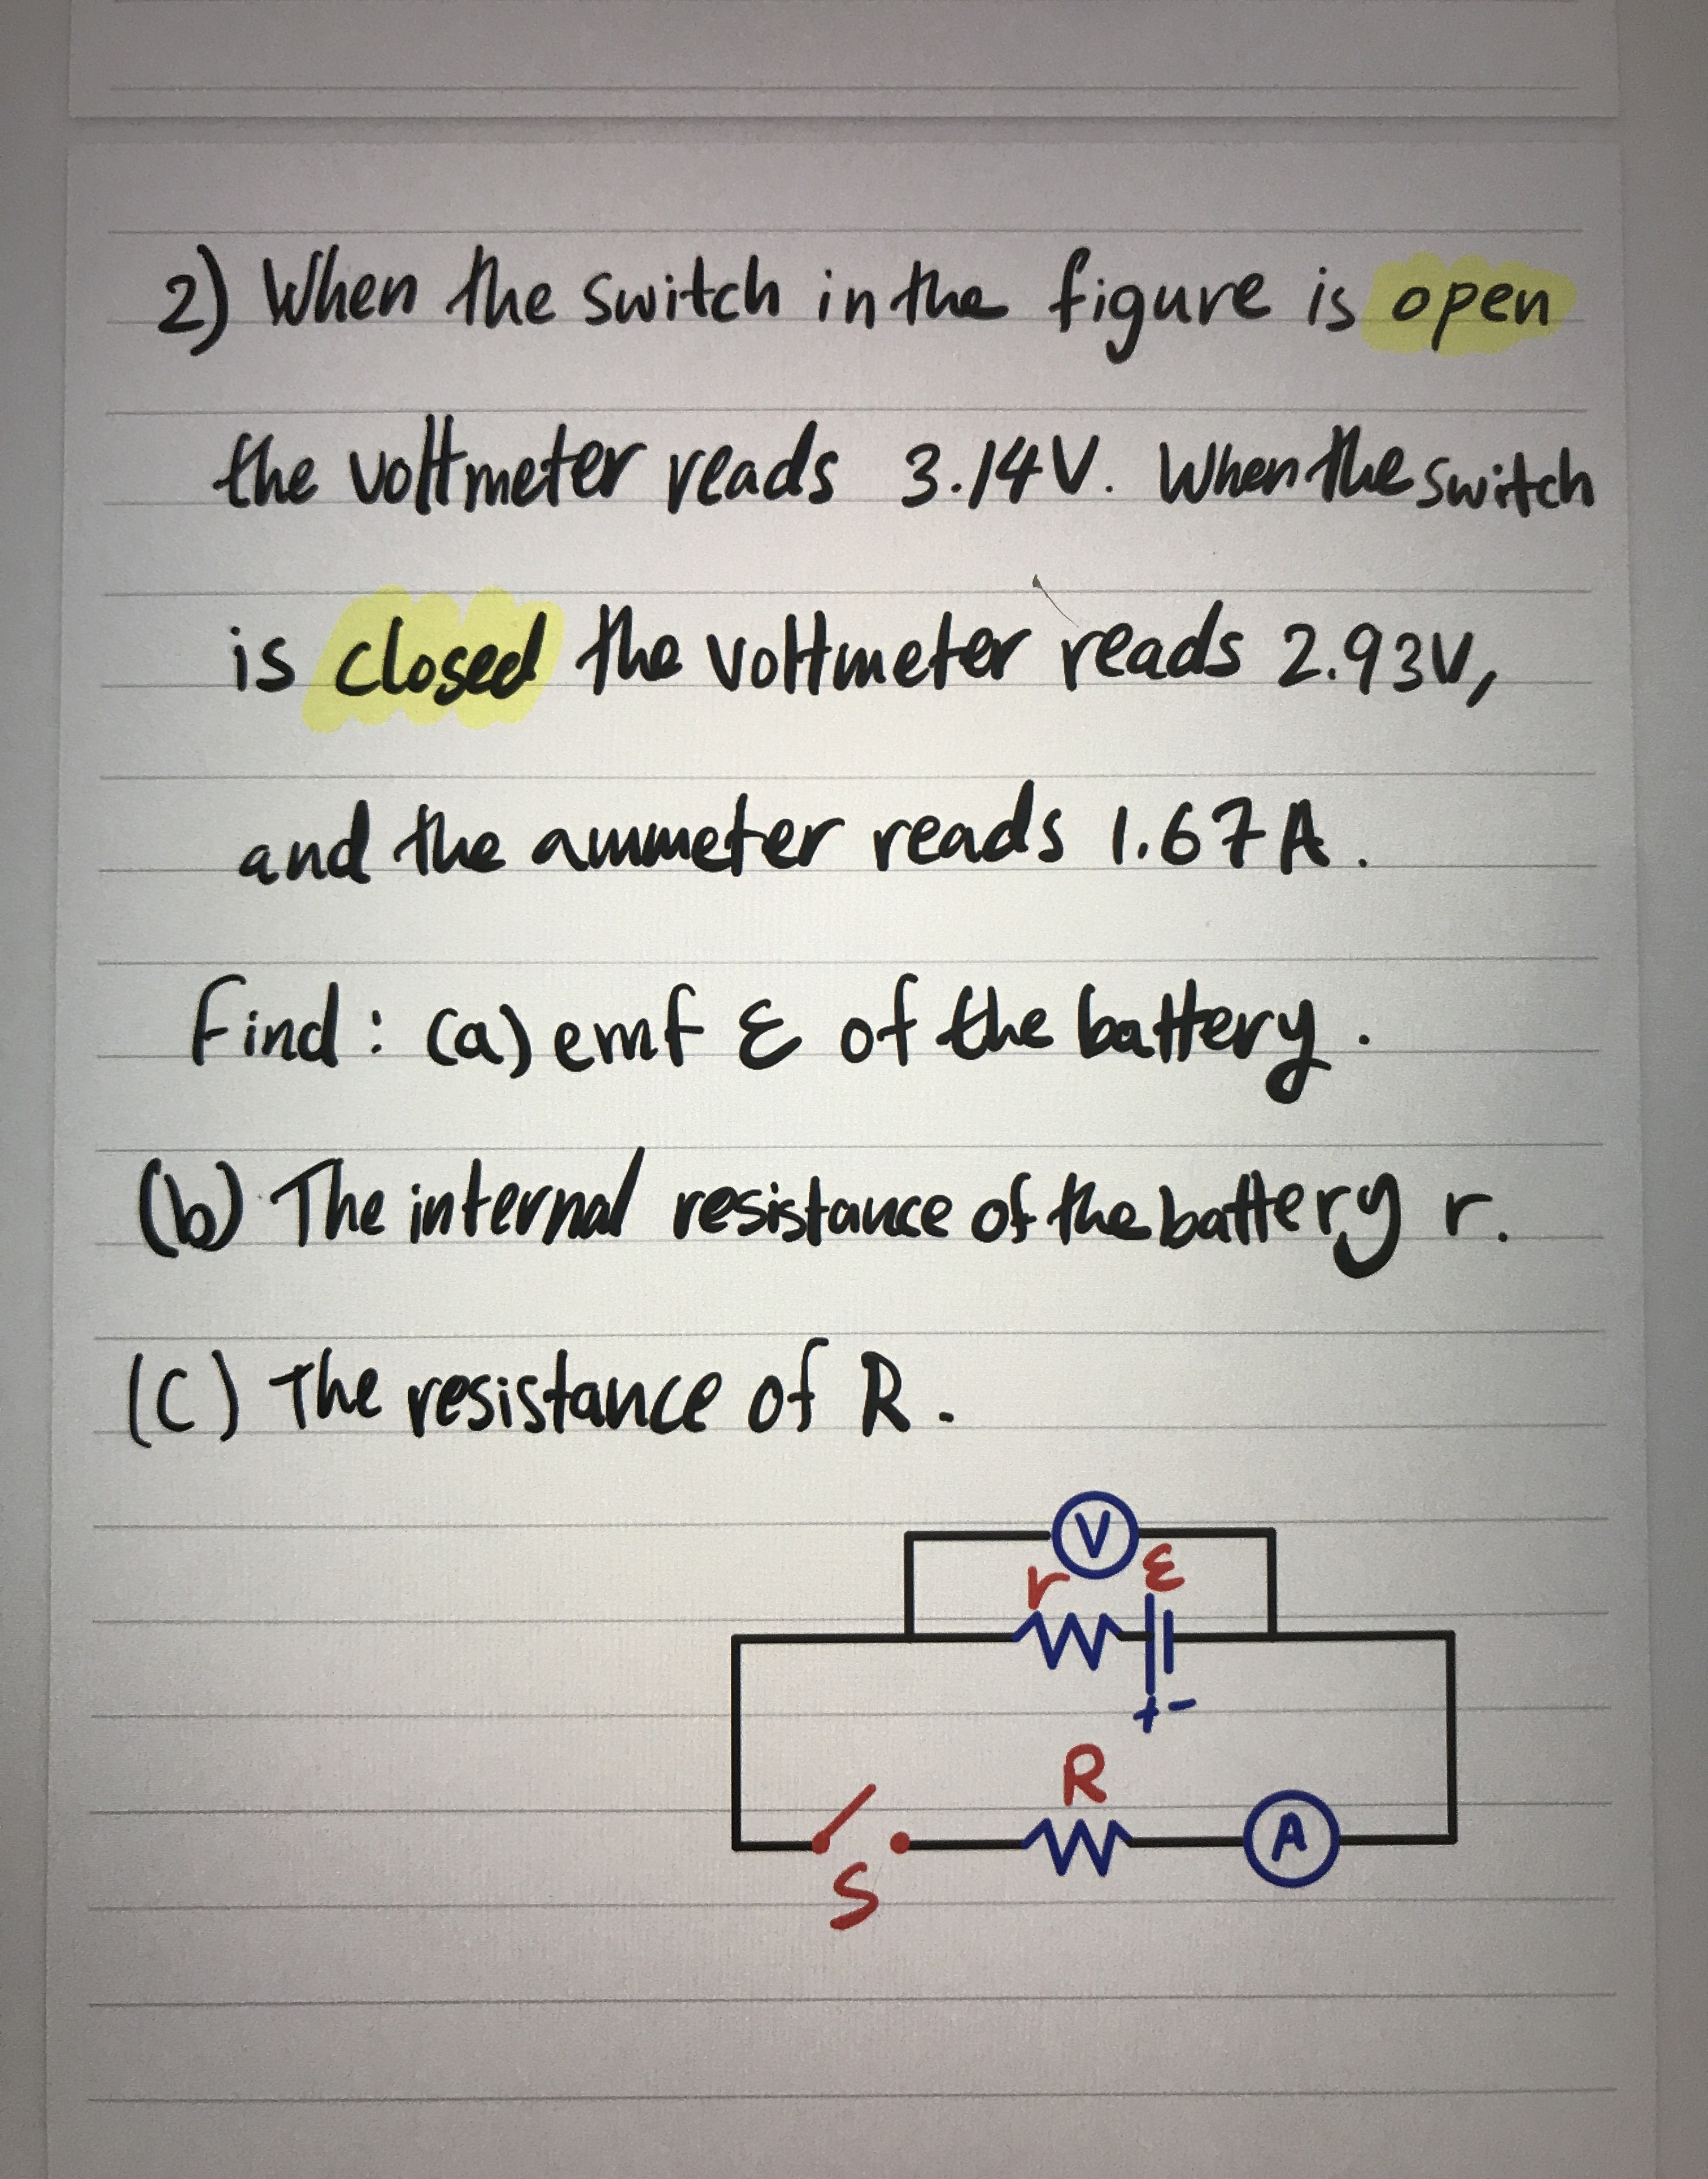 2) When the switch in the figure is open
the voltmeter reads 3.14V. When the switch
is closed the voltmeter reads 2.93V,
and the ammeter reads 1.67A.
Find: (a) emf ε of the battery.
(b) The internal resistance of the battery r.
(C) The resistance of R.
V
r ε
+ -
R
A
S